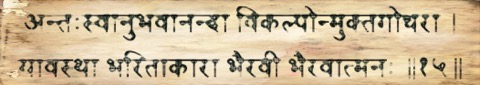 अन्तःस्वानुभवानन्दा विकल्पोन्मुक्तगोचरा ।
यावस्था भरिताकारा भैरवी भैरवात्मनः ॥१५॥